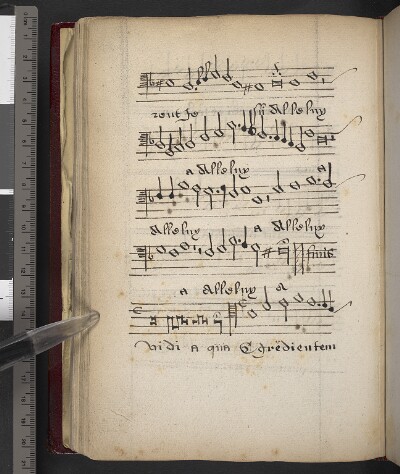 sy Alleluy
a Alleluy a
Alleluy a Alleluy
finis
a Alleluy a
Vidi a qua Egredientem